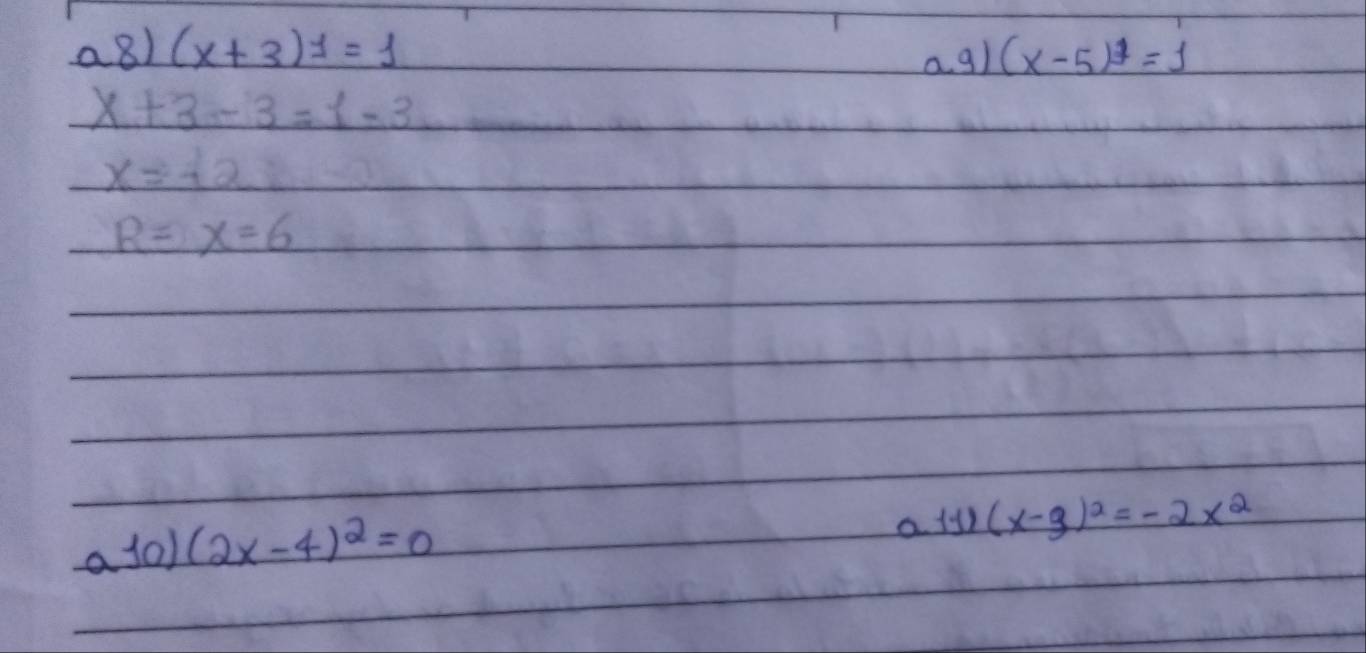 a8) (x+3)1 = 1
a.9) (x-5)1 = 1
x+3-3=1-3
x=-2
R= x=6
a10) (2x-4)² = 0
a11) (x-3)² = -2x²